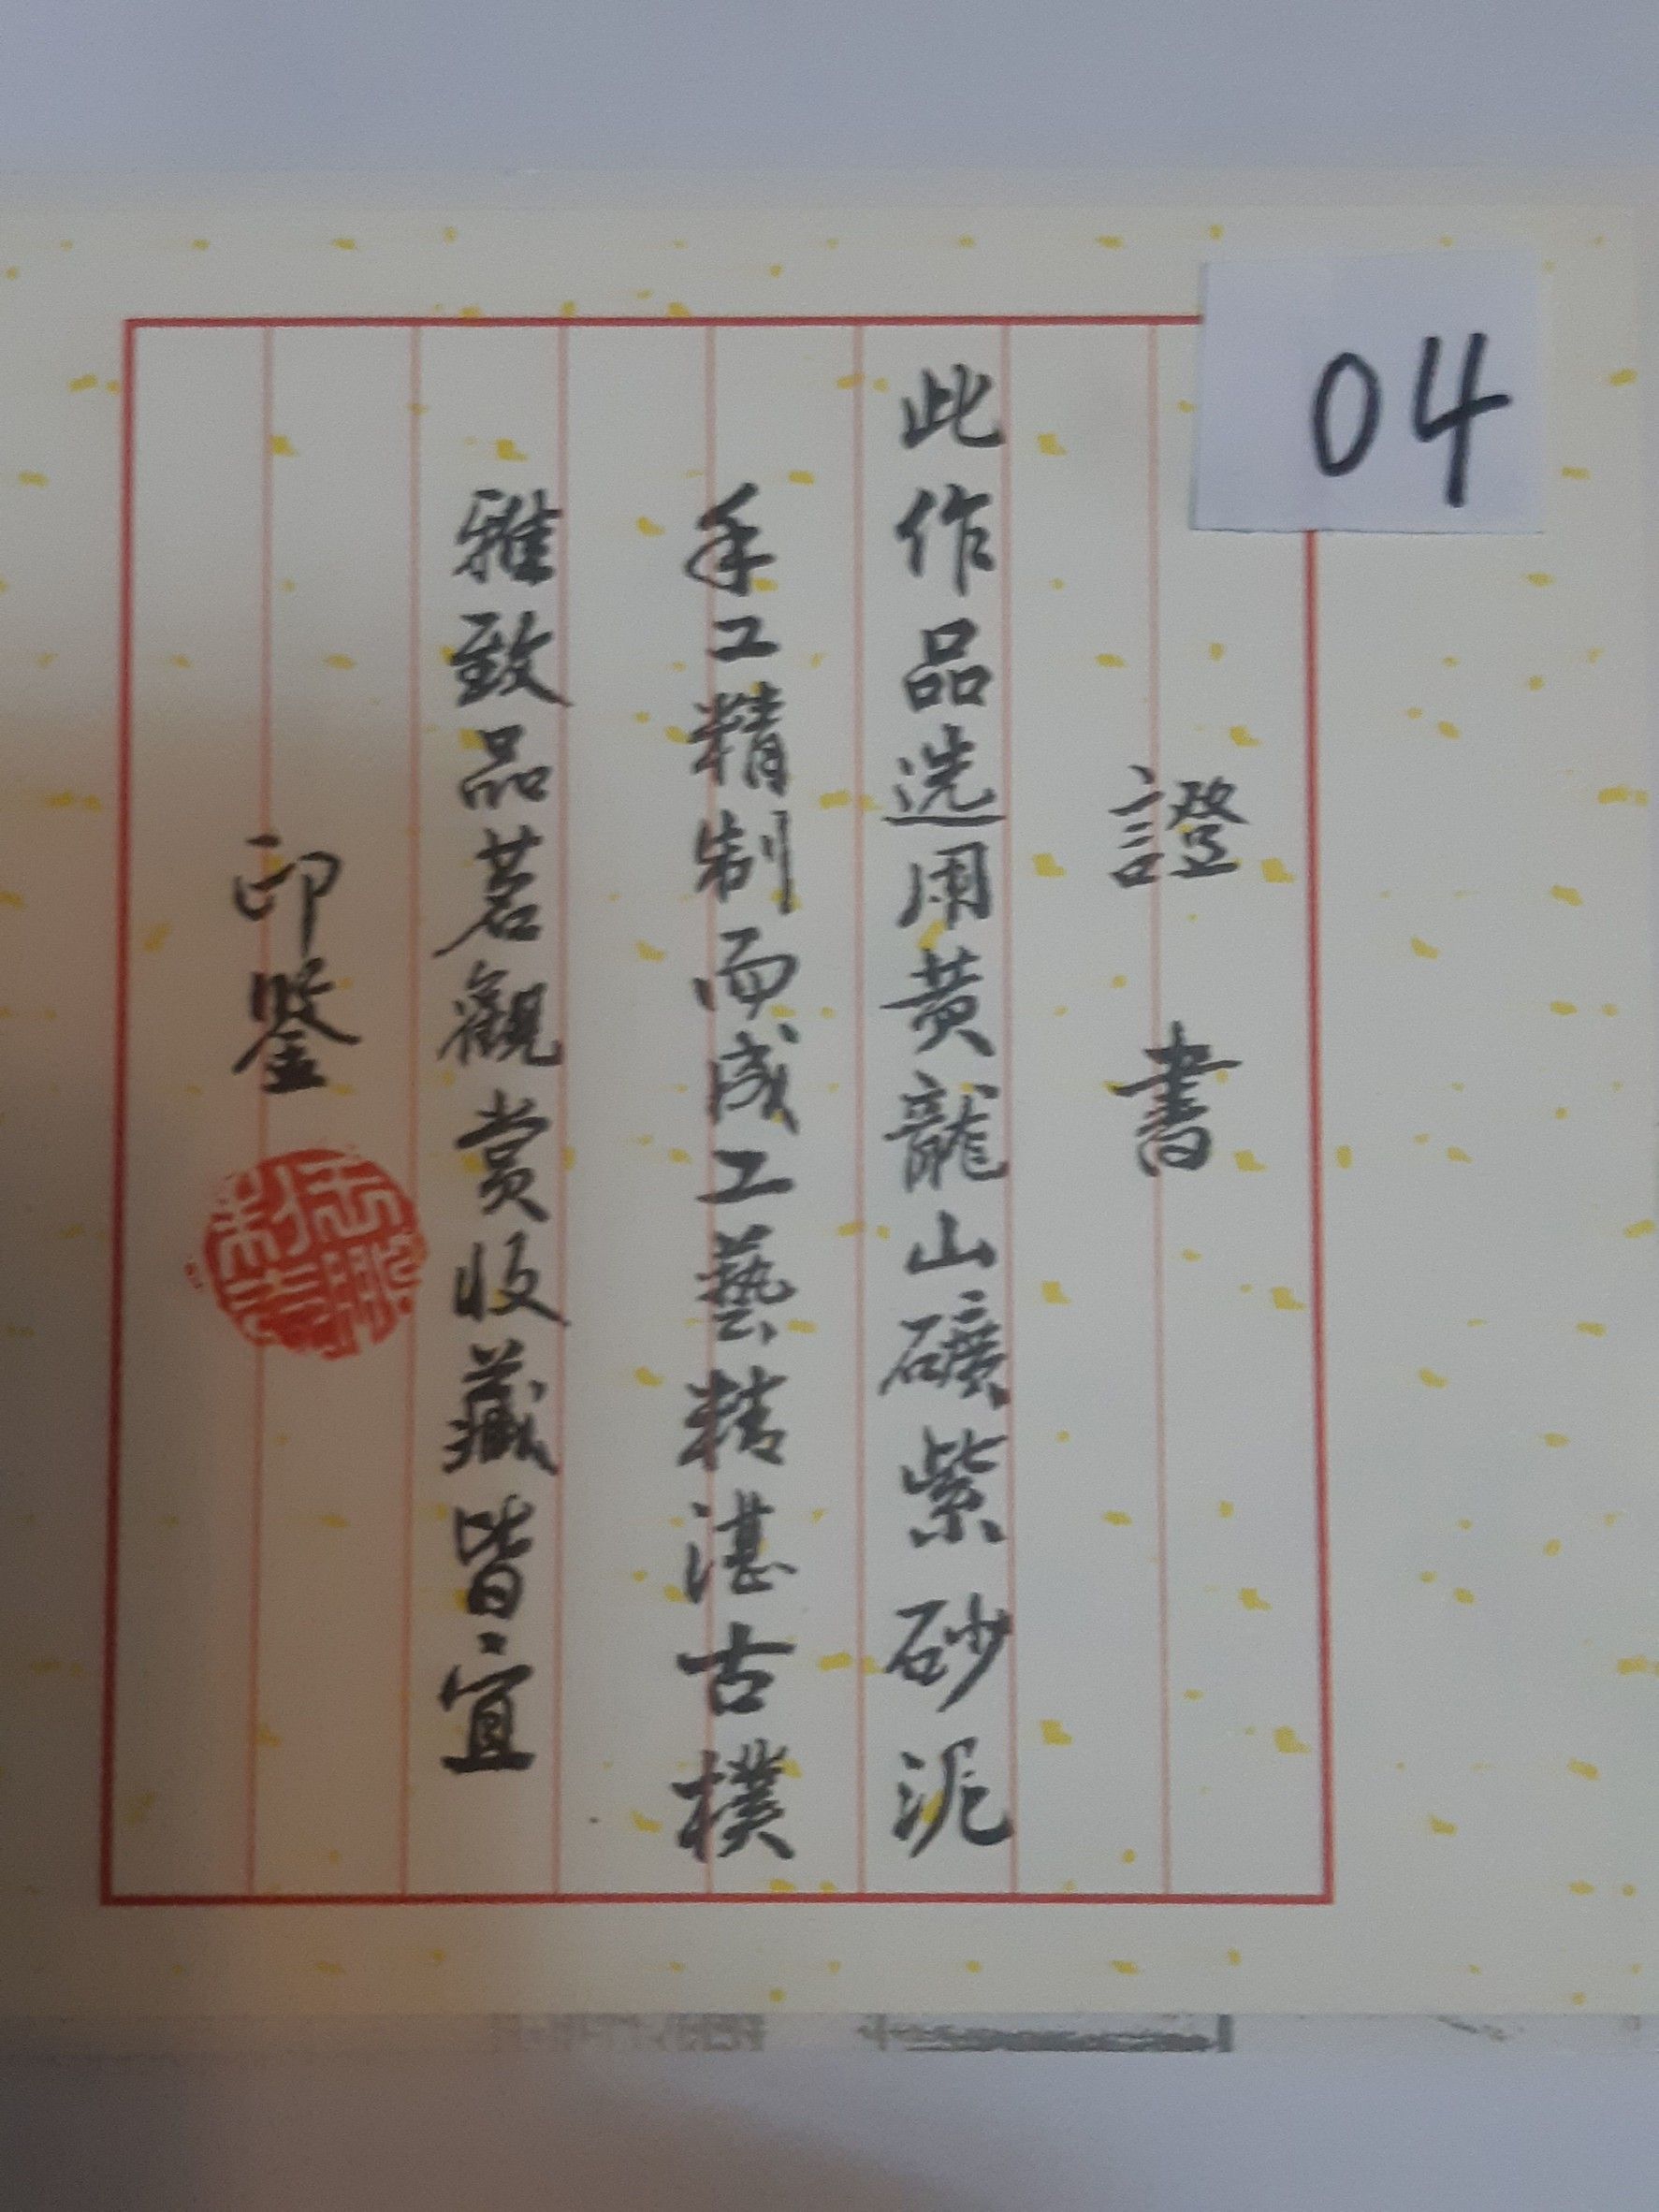 04
證書
此作品选用黄龍山礦紫砂泥
手工精制而成工藝精湛古樸
雅致品茗觀赏收藏皆宜
印鑒